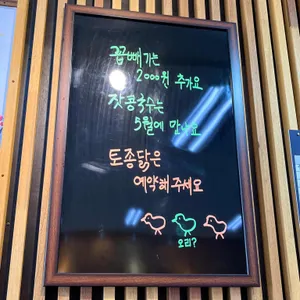 곱빼기는
2000원 추가요
잣콩국수는
5월에 만나요
토종닭은
예약해 주세요
오리?